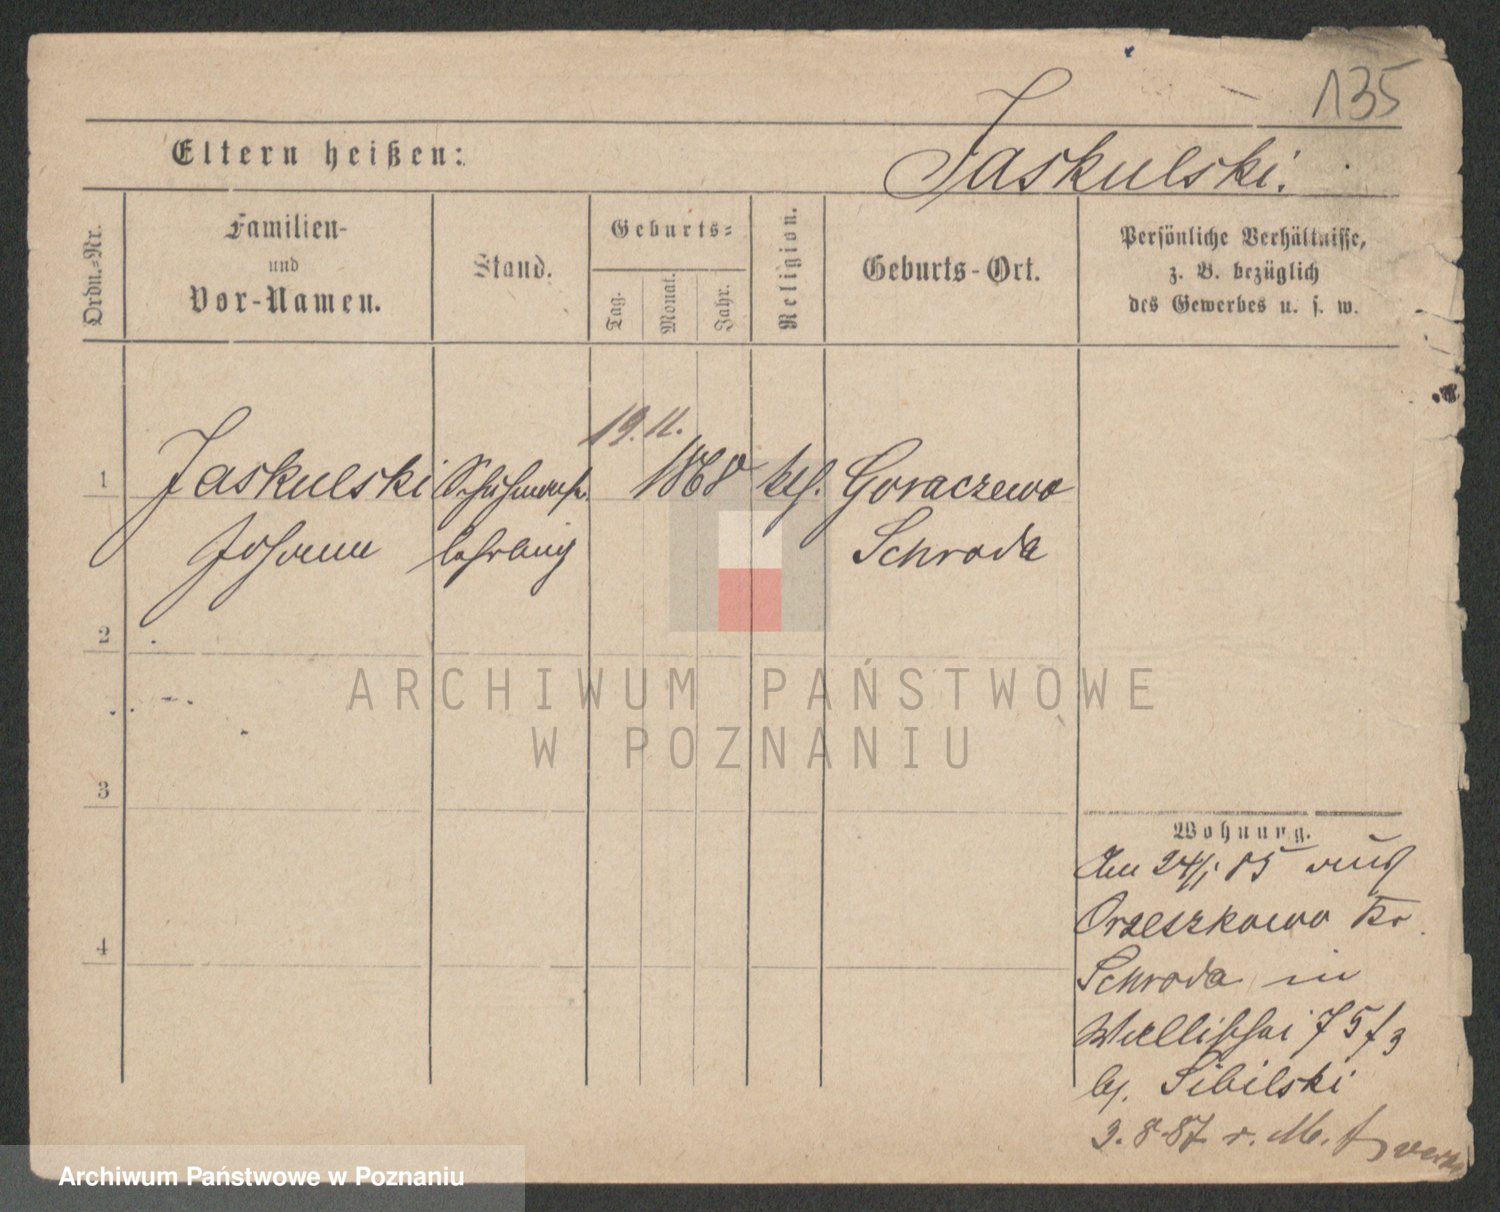 135
Eltern heißen:
Jaskulski.
Ordn.-Nr.
Familien-
und
Vor-Namen.
Stand.
Geburts-
Tag.
Monat.
Jahr.
Religion.
Geburts-Ort.
Persönliche Verhältnisse,
z. B. bezüglich
des Gewerbes u. s. w.
19. 11.
1 Jaskulski Schuhmach. 1868 kth. Goraczewo
Johann lehrling Schroda
2
ARCHIWUM PAŃSTWOWE
W POZNANIU
3
Wohnung.
Am 24/1 85 aus
Orzeszkowo Kr
4
Schroda in
Wallischei 75/3
bej. Sibilski
3. 8 87 r. M.
Archiwum Państwowe w Poznaniu